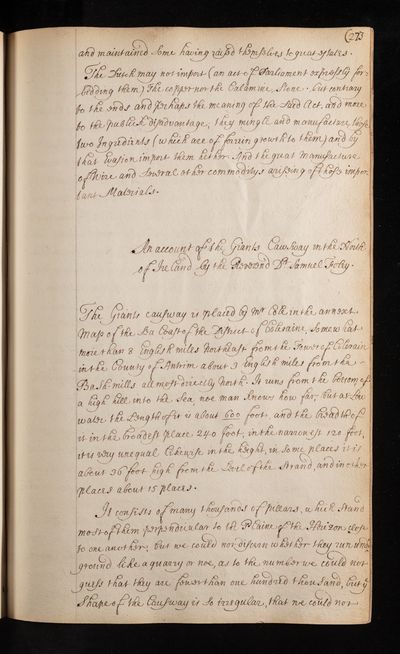 (273
and maintained some having raised themselves to great estates.
The Dutch may not import (an act of Parliament expressly for-
bidding them) The copper nor the Calamine Stone. but contrary
to the ends and perhaps the meaning of the said Act, and more
to the publick disadvantage, they mingle and manufacture those
two Ingredients (which are of forrein growth to them) and by
that evasion import them hether. And the great manufacture
of Wire and several other commoditys arising of those impor
tant Materials.
An account of the Giants Causway in the North
of Ireland by the Reverend Dr. Samuel Foley.
The Giants causway is placed by Mr Cole in the annext
Mapp of the Sea Coast of the District of Coleraine, somewhat
more than 8 English miles Northeast from the Town of Colerain
in the County of Antrim about 3 English miles from the
Bushmills allmost directly North. It runs from the bottom of
a high hill into the Sea noe man knows how far, but at low
water the Length of it is about 600 foot, and the breadth of
it in the broadest place 240 foot, in the narrowest 120 foot,
it is very unequal likewise in the height, in some places it is
about 36 foot high from the Level of the Strand, and in other
places about 15 places.
It consists of many thousands of pillars, which stand
most of them perpendicular to the Plaine of the Horizon close
to one another, but we could not discern whether they run under
ground like a quarry or noe, as to the number we could not
guess that they are fewer than one hundred thousand, but ye
shape of the Causway is so irregular, that we could not